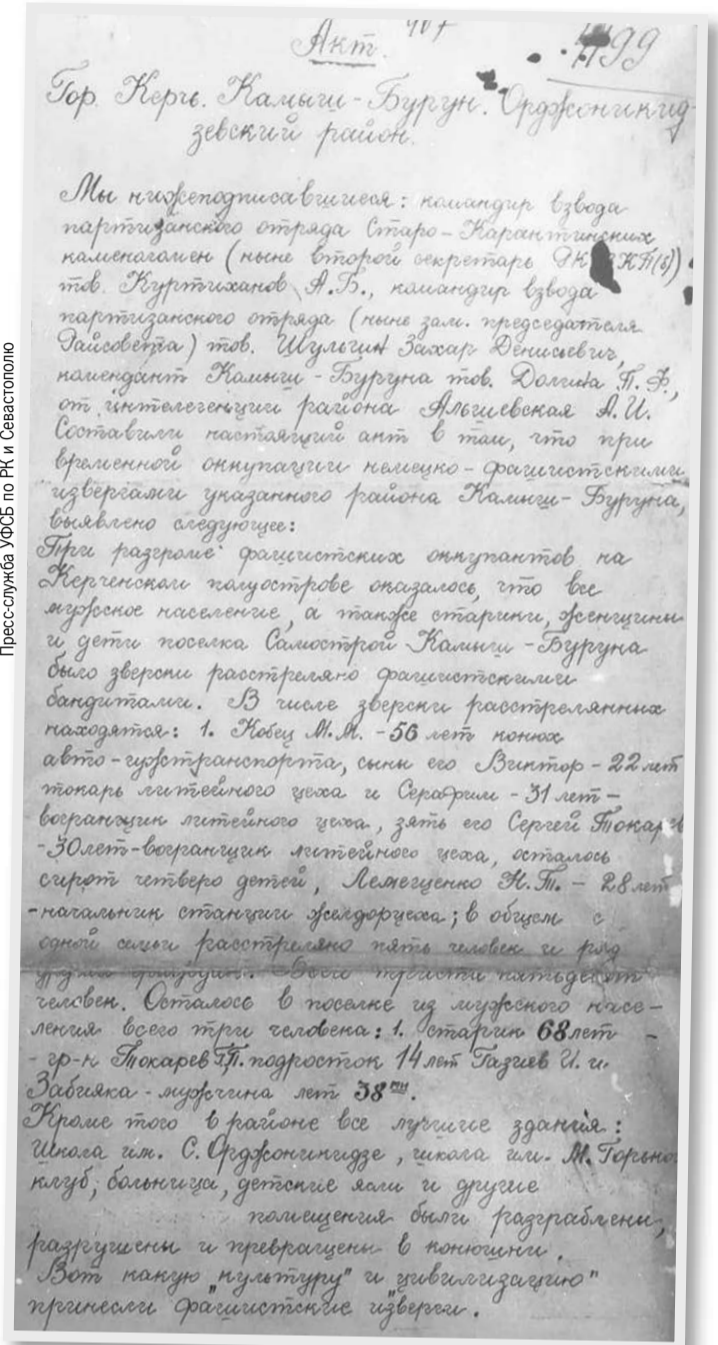 Пресс-служба УФСБ по РК и Севастополю
Акт.
99
Гор. Керчь. Камыш-Бурун. Орджоникид-
зевский район.
Мы нижеподписавшиеся: командир взвода
партизанского отряда Старо-Карантинских
каменоломен (ныне второй секретарь РК ВКП(б))
тов. Куртиханов А.Б., командир взвода
партизанского отряда (ныне зам. председателя
Райсовета) тов. Шульгин Захар Денисьевич,
комендант Камыш-Буруна тов. П. Ф.,
от интелегенции района А. И.
Составили настоящий акт в том, что при
временной оккупации немецко-фашистскими
извергами указанного района Камыш-Буруна,
выявлено следующее:
При разгроме фашистских оккупантов на
Керченском полуострове оказалось, что все
мужское население, а также старики, женщины
и дети поселка Самострой Камыш-Буруна
было зверски расстреляно фашистскими
бандитами. В числе зверски расстрелянных
находятся: 1. Кобец М.М. - 56 лет конюх
авто-гужтранспорта, сыны его Виктор - 22 лет
токарь литейного цеха и Серафим - 31 лет -
вогранщик литейного цеха, зять его Сергей Токарев
- 30 лет - вогранщик литейного цеха, осталось
сирот четверо детей, Лемещенко Н.Т. - 28 лет
- начальник станции желдорцеха; в общем с
одной семьи расстреляно пять человек и ряд
триста пятьдесят
человек. Осталось в поселке из мужского насе-
ления всего три человека: 1. старик 68 лет -
- гр-н Токарев подросток 14 лет Газиев И. и
Забияка - мужчина лет 38ми.
Кроме того в районе все лучшие здания:
Школа им. С. Орджоникидзе, школа им. М. Горького
клуб, больница, детские ясли и другие
помещения были разграблены,
разрушены и превращены в конюшни.
Вот какую "культуру" и "цивилизацию"
принесли фашистские изверги.